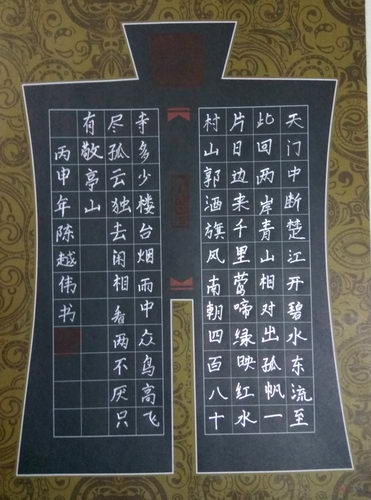 天门中断楚江开碧水东流至
此回两岸青山相对出孤帆一
片日边来千里莺啼绿映红水
村山郭酒旗风南朝四百八十
寺多少楼台烟雨中众鸟高飞
尽孤云独去闲相看两不厌只
有敬亭山
丙申年陈越伟书